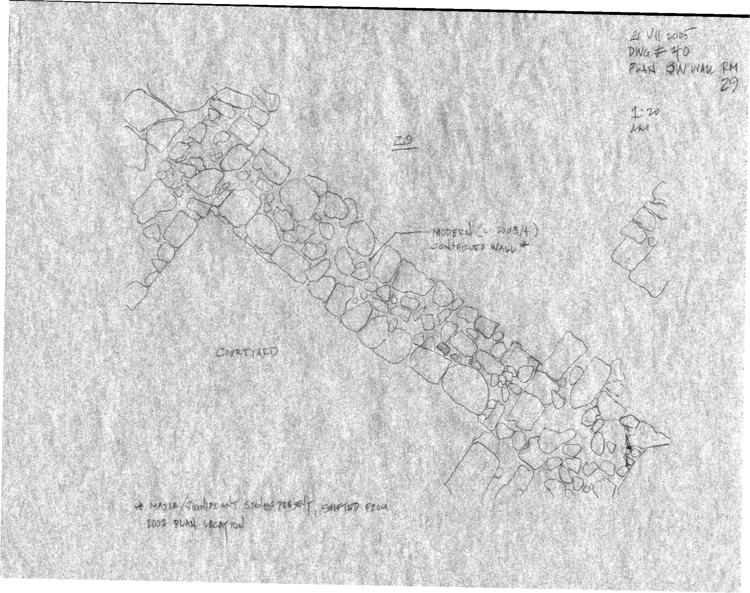 21 VII 2005
DWG # 40
PLAN SW WALL RM
29
1:20
29
MODERN (C. 2003/4)
CONSERVED WALL *
COURTYARD
* MAJOR/SIGNIFICANT STONES PRESENT, SHIFTED FROM
2002 PLAN LOCATION